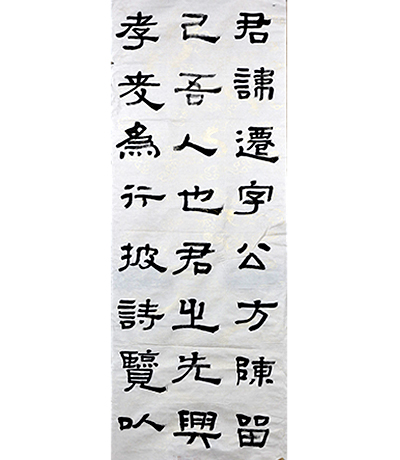 君諱遷字公方陳留
己吾人也君之先興
孝友為行披詩覽以